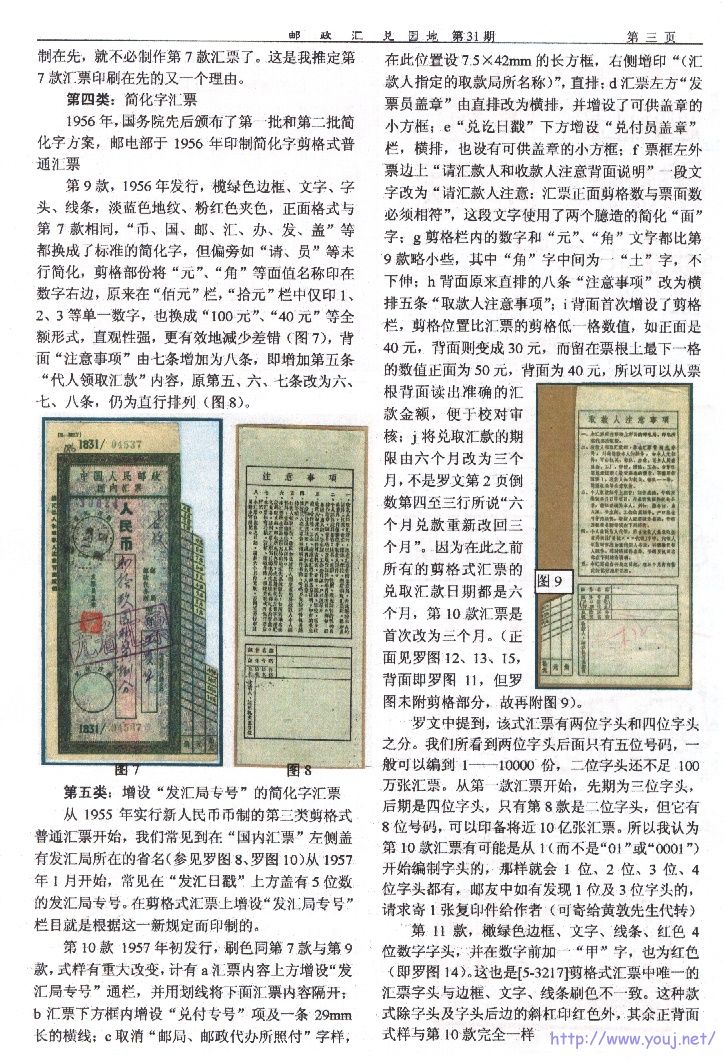 邮 政 汇 兑 园地 第31期 第 三 页
制在先，就不必制作第 7 款汇票了。这是我推定第
7 款汇票印刷在先的又一个理由。
第四类：简化字汇票
1956 年，国务院先后颁布了第一批和第二批简
化字方案，邮电部于 1956 年印制简化字剪格式普
通汇票
第 9 款，1956 年发行，榄绿色边框、文字、字
头、线条，淡蓝色地纹、粉红色夹色，正面格式与
第 7 款相同，“币、国、邮、汇、办、发、盖”等
都换成了标准的简化字，但偏旁如“请、员”等未
行简化，剪格部份将“元”、“角”等面值名称印在
数字右边，原来在“佰元”栏，“拾元”栏中仅印 1、
2、3 等单一数字，也换成“100 元”、“40 元”等全
额形式，直观性强，更有效地减少差错（图 7），背
面“注意事项”由七条增加为八条，即增加第五条
“代人领取汇款”内容，原第五、六、七条改为六、
七、八条，仍为直行排列（图 8）。
1831/ 04537
中国人民邮政
国内汇票
人民币
1831/ 04537
图 7
注 意 事 项
图 8
第五类：增设“发汇局专号”的简化字汇票
从 1955 年实行新人民币币制的第三类剪格式
普通汇票开始，我们常见到在“国内汇票”左侧盖
有发汇局所在的省名（参见罗图 8、罗图 10）从 1957
年 1 月开始，常见在“发汇日戳”上方盖有 5 位数
的发汇局专号。在剪格式汇票上增设“发汇局专号”
栏目就是根据这一新规定而印制的。
第 10 款 1957 年初发行，刷色同第 7 款与第 9
款，式样有重大改变，计有 a 汇票内容上方增设“发
汇局专号”通栏，并用划线将下面汇票内容隔开；
b 汇票下方框内增设“兑付专号”项及一条 29mm
长的横线；c 取消“邮局、邮政代办所照付”字样，
在此位置设 7.5×42mm 的长方框，右侧增印“（汇
款人指定的取款局所名称）”，直排；d 汇票左方“发
票员盖章”由直排改为横排，并增设了可供盖章的
小方框；e“兑讫日戳”下方增设“兑付员盖章”
栏，横排，也设有可供盖章的小方框；f 票框左外
票边上“请汇款人和收款人注意背面说明”一段文
字改为“请汇款人注意：汇票正面剪格数与票面数
必须相符”，这段文字使用了两个臆造的简化“面”
字；g 剪格栏内的数字和“元”、“角”文字都比第
9 款略小些，其中“角”字中间为一“土”字，不
下伸；h 背面原来直排的八条“注意事项”改为横
排五条“取款人注意事项”；i 背面首次增设了剪格
栏，剪格位置比汇票的剪格低一格数值，如正面是
40 元，背面则变成 30 元，而留在票根上最下一格
的数值正面为 50 元，背面为 40 元，所以可以从票
根背面读出准确的汇
款金额，便于校对审
核；j 将兑取汇款的期
限由六个月改为三个
月，不是罗文第 2 页倒
数第四至三行所说“六
个月兑款重新改回三
个月”。因为在此之前
所有的剪格式汇票的
兑取汇款日期都是六
个月，第 10 款汇票是
首次改为三个月。（正
面见罗图 12、13、15，
背面即罗图 11，但罗
图未附剪格部分，故再附图 9）。
取款人注意事项
图 9
罗文中提到，该式汇票有两位字头和四位字头
之分。我们所看到两位字头后面只有五位号码，一
般可以编到 1——10000 份，二位字头还不足 100
万张汇票。从第一款汇票开始，先期为三位字头，
后期是四位字头，只有第 8 款是二位字头，但它有
8 位号码，可以印备将近 10 亿张汇票。所以我认为
第 10 款汇票有可能是从 1（而不是“01”或“0001”）
开始编制字头的，那样就会 1 位、2 位、3 位、4
位字头都有，邮友中如有发现 1 位及 3 位字头的，
请求寄 1 张复印件给作者（可寄给黄敦先生代转）
第 11 款，橄绿色边框、文字、线条、红色 4
位数字字头，并在数字前加一“甲”字，也为红色
（即罗图 14）。这也是[5-3217]剪格式汇票中唯一的
汇票字头与边框、文字、线条刷色不一致。这种款
式除字头及字头后边的斜杠印红色外，其余正背面
式样与第 10 款完全一样
http://www.youj.net/